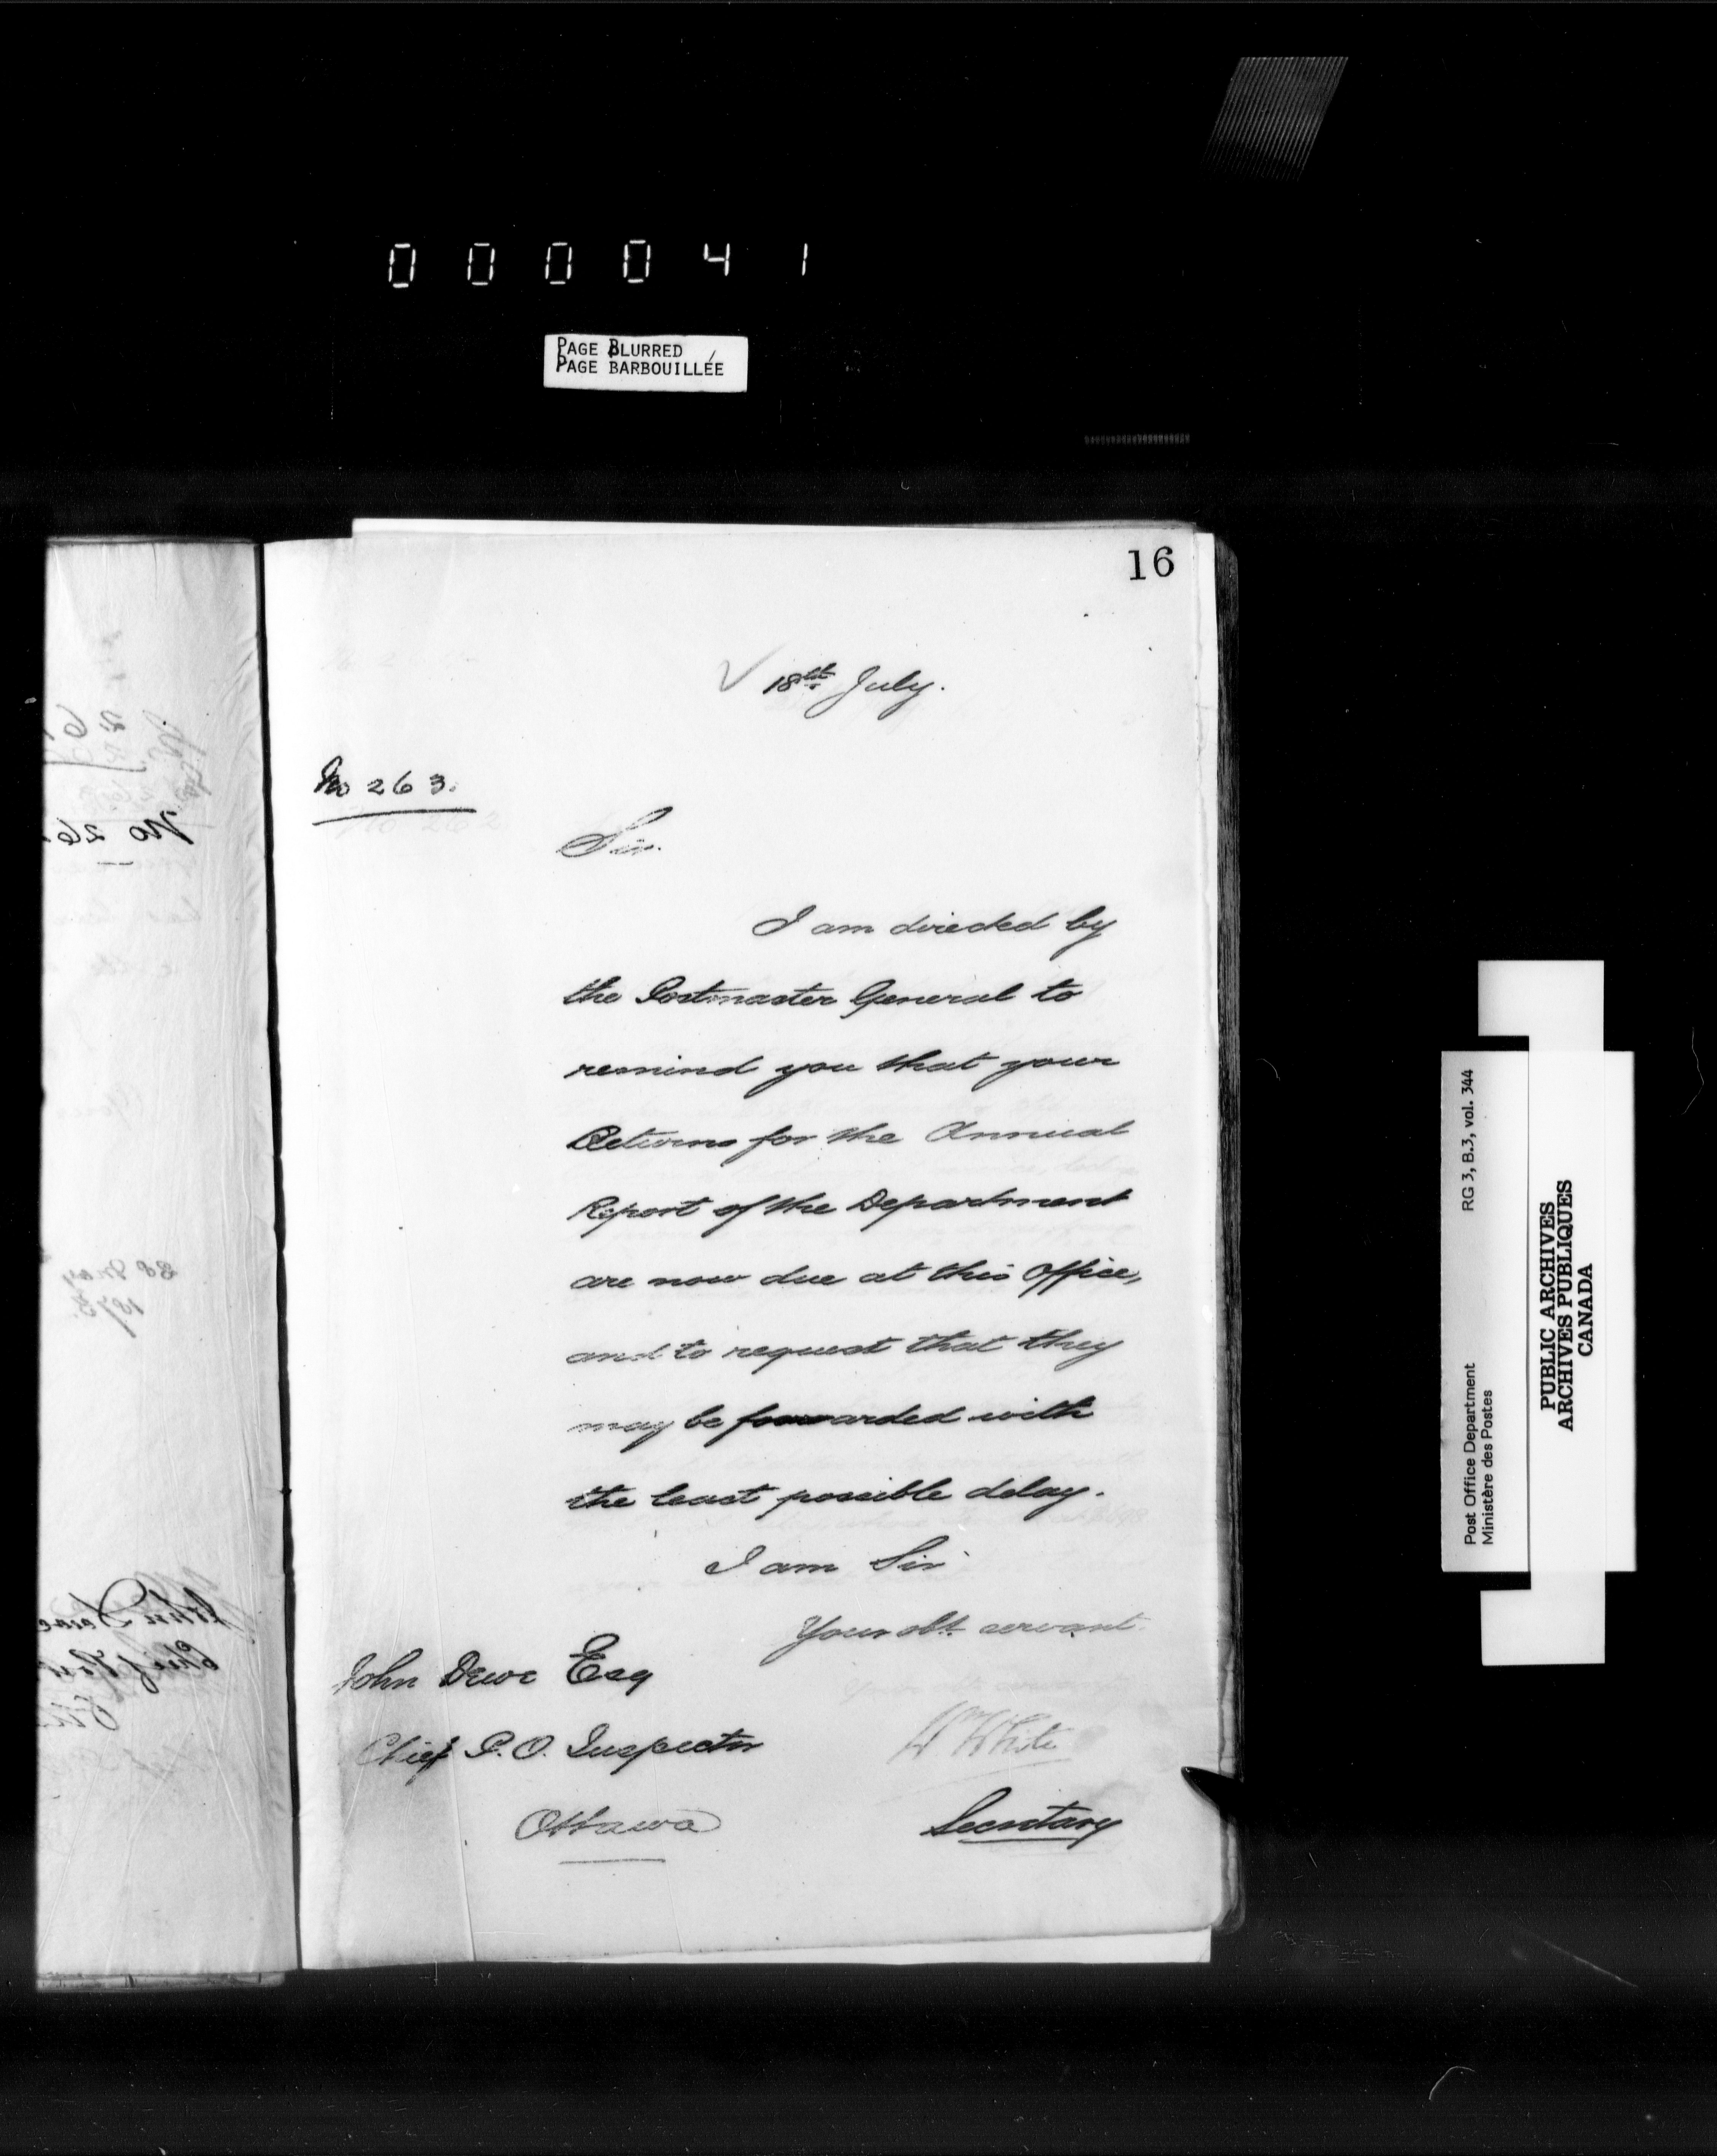 000041
PAGE BLURRED
PAGE BARBOUILLÉE
16
18th July.
No 263.
Sir.
I am directed by
the Postmaster General to
remind you that your
Returns for the Annual
Report of the Department
are now due at this Office,
and to request that they
may be forwarded with
the least possible delay.
I am Sir
Your obt. servant
John Dewe Esq
Chief P. O. Inspector
Ottawa
Wm White
Secretary
No 26
28 May
187
John
Chief
Post Office Department
Ministère des Postes
RG 3, B.3, vol. 344
PUBLIC ARCHIVES
ARCHIVES PUBLIQUES
CANADA